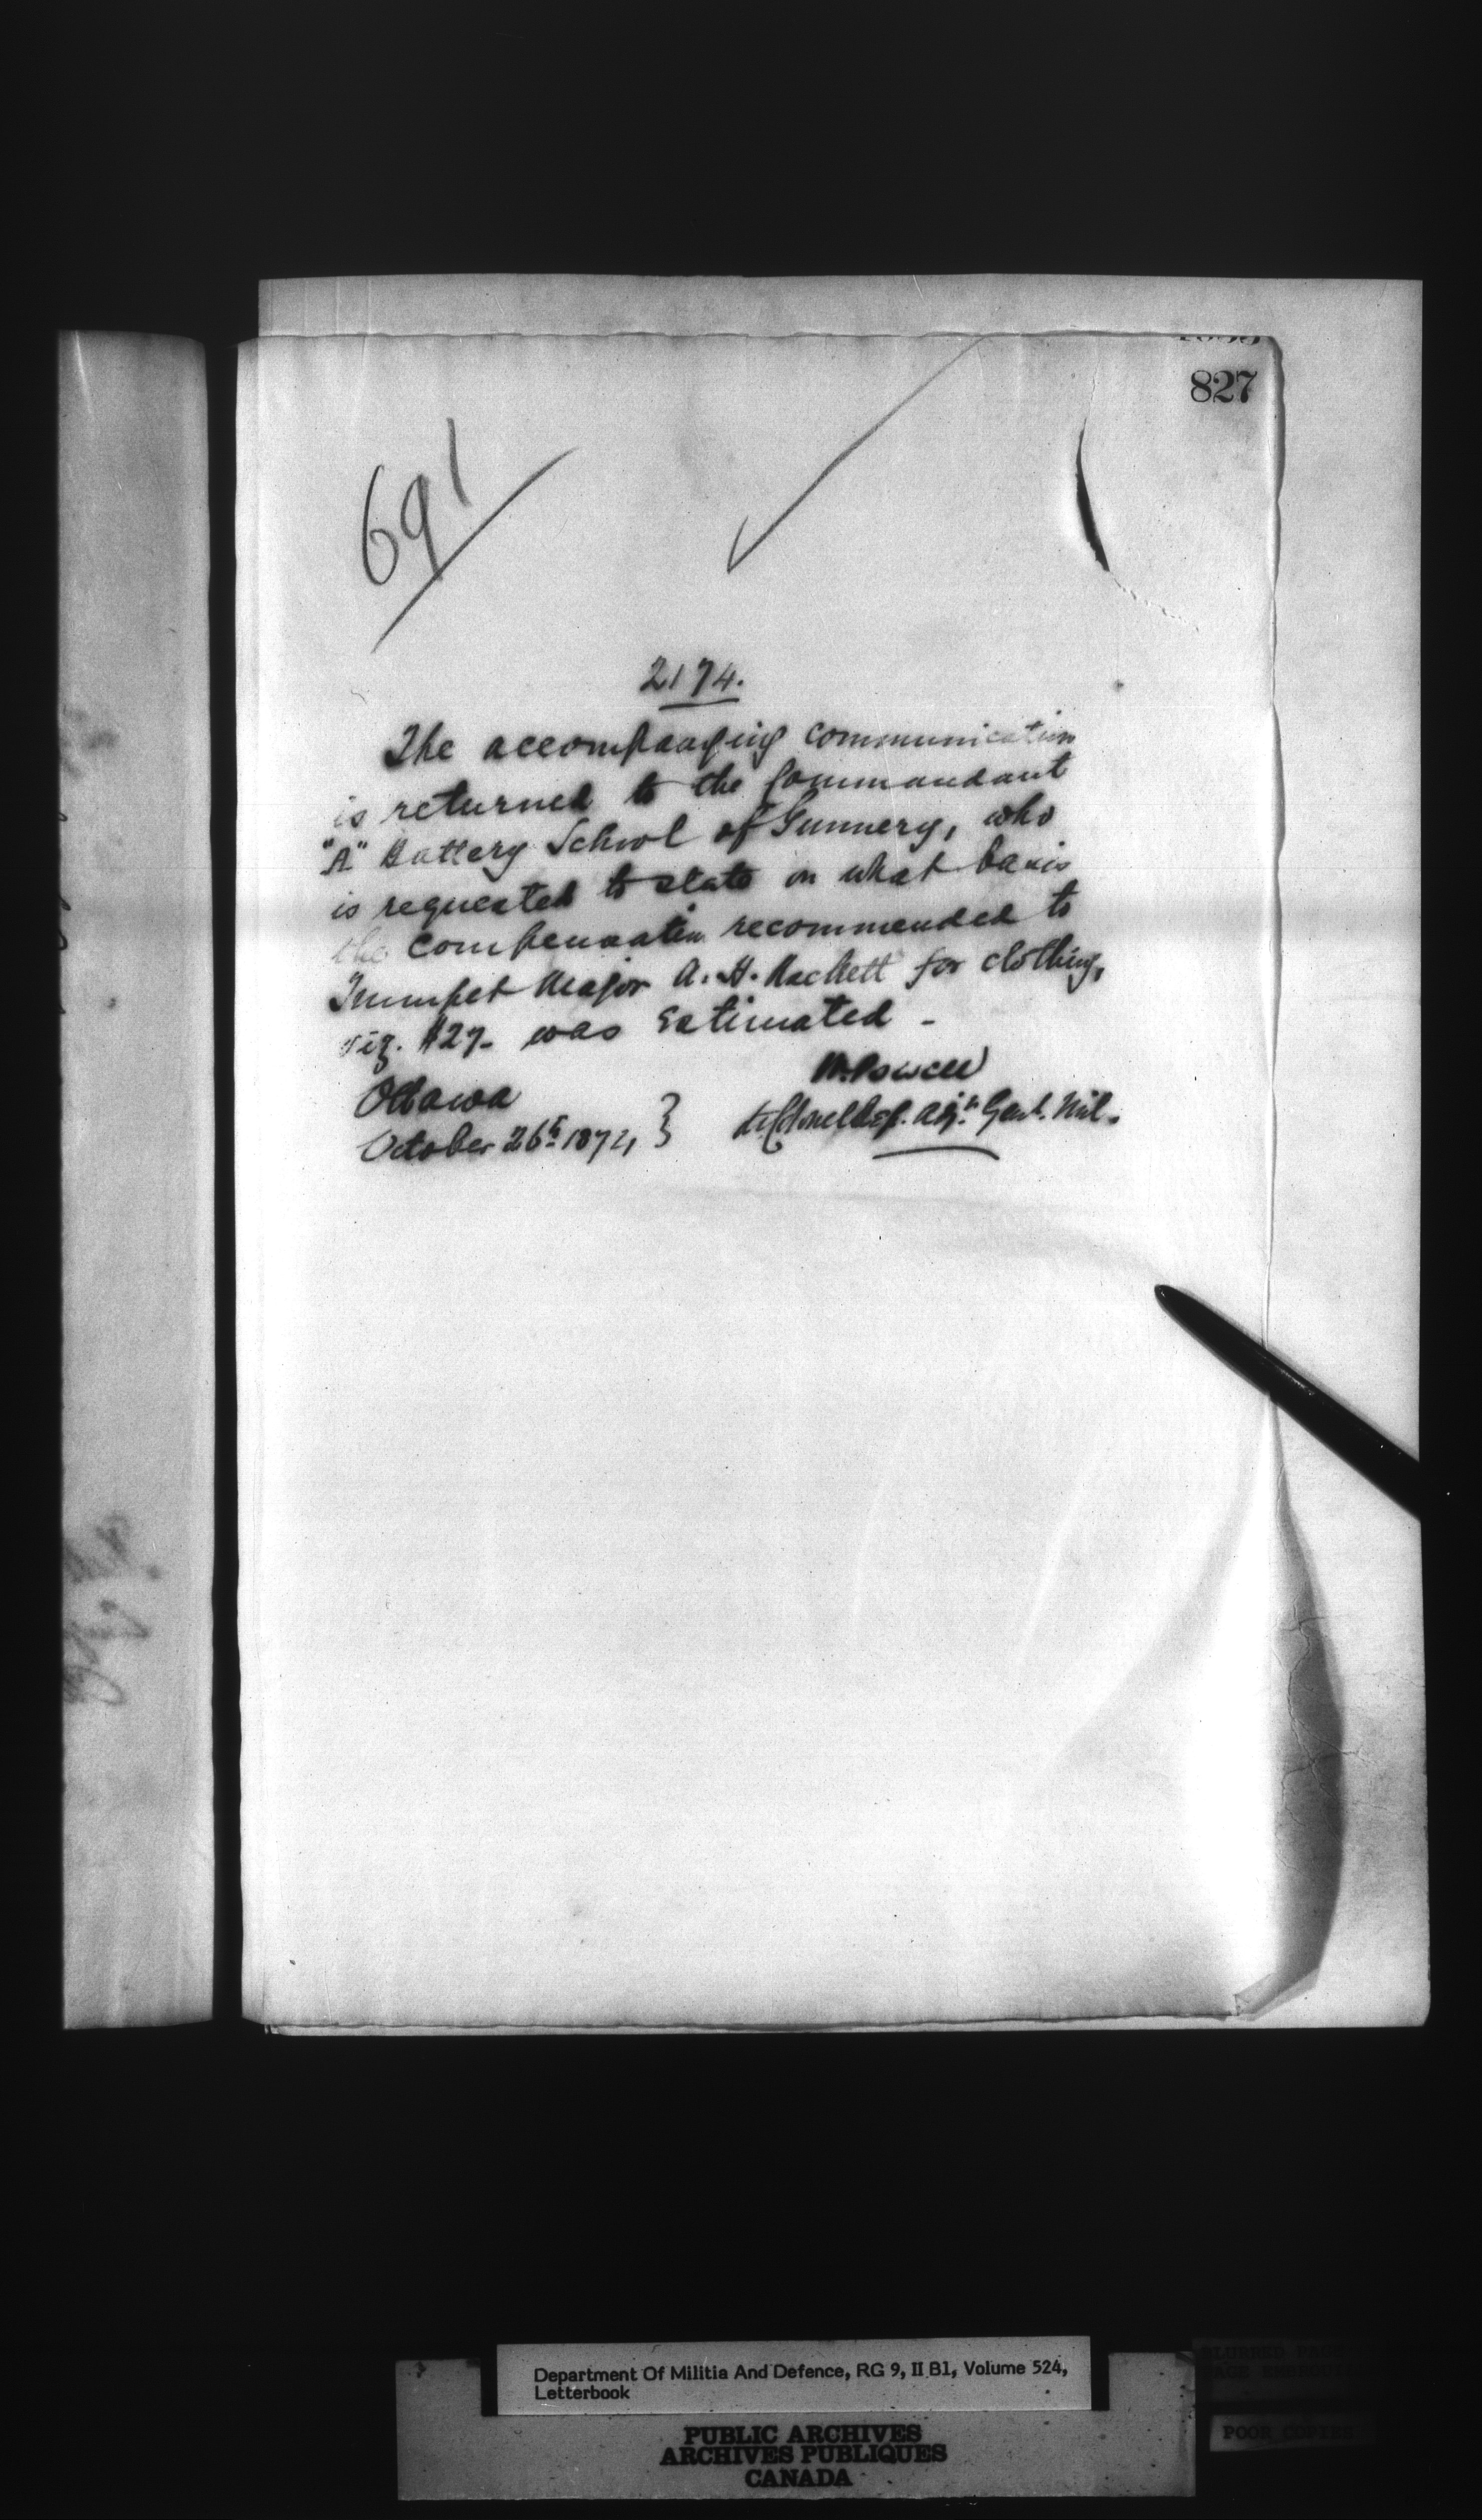 827
691
2174.
The accompanying communication
is returned to the Commandant
"A" Battery School of Gunnery, who
is requested to state on what basis
the compensation recommended to
Trumpet Major A. H. Hackett for clothing,
viz. $27- was estimated -
W. Powell
Ottawa
Lt Colonel Dep. Adjt. Genl. Mil.
October 26th 187
Department Of Militia And Defence, RG 9, II B1, Volume 524,
Letterbook
PUBLIC ARCHIVES
ARCHIVES PUBLIQUES
CANADA
POOR COPIES